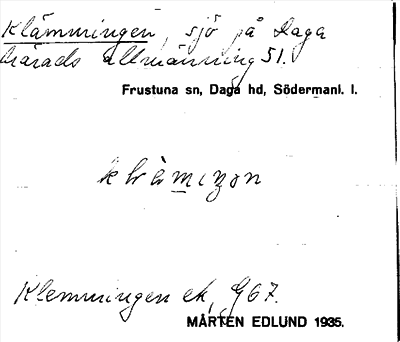 Klämmingen, sjö på Daga
härads allmänning Sl.
Frustuna sn, Daga hd, Södermanl. l.
Klemmingen ek, G67.
MÅRTEN EDLUND 1935.